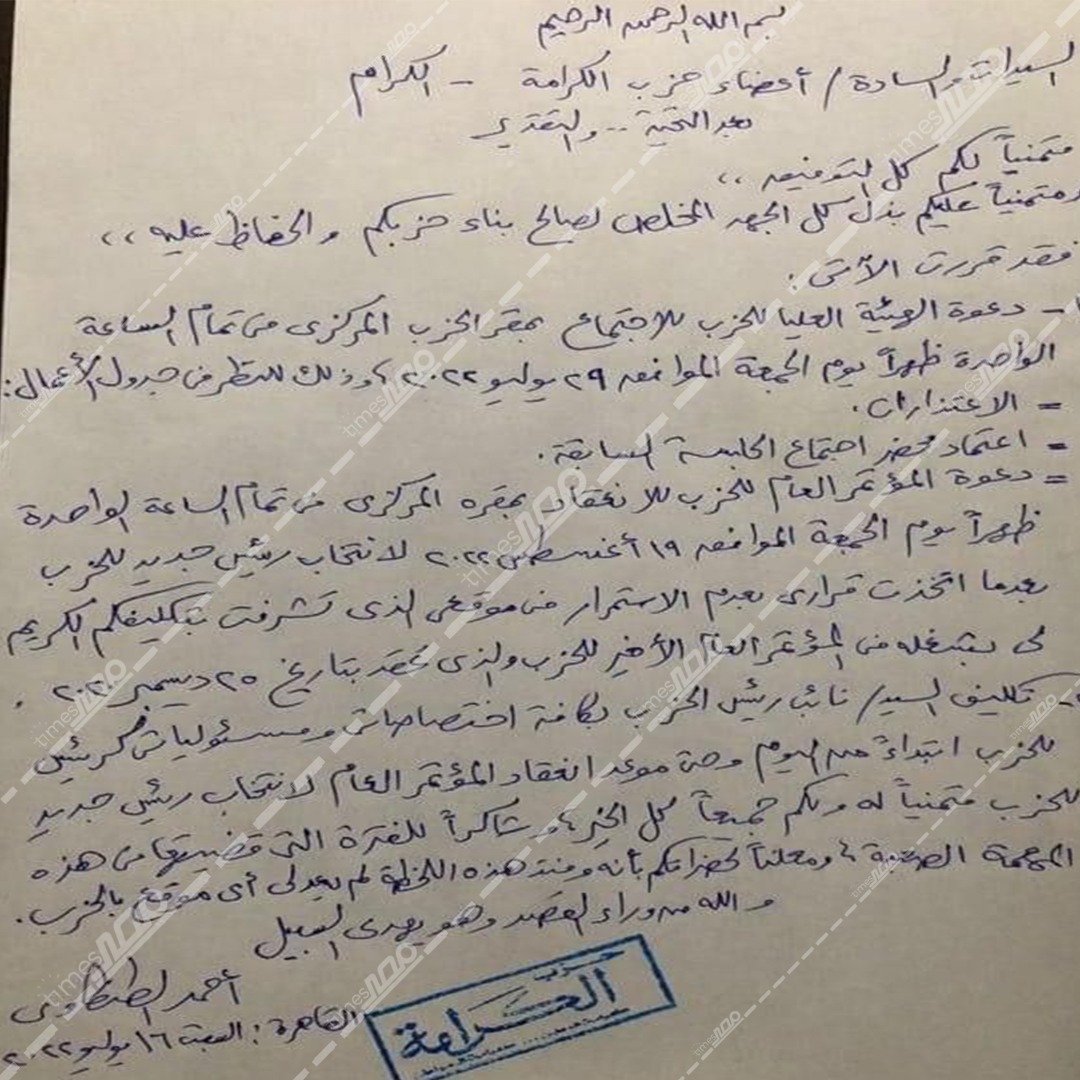 بسم الله الرحمن الرحيم
السيدات والسادة / أعضاء حزب الكرامة - الكرام
بعد التحية .. والتقدير
متمنياً لكم كل التوفيق ،،
ومتمنياً عليكم بذل كل الجهد المخلص لصالح بناء حزبكم والحفاظ عليه ،،
فقد قررت الآتى :
١- دعوة الهيئة العليا للحزب للاجتماع بمقر الحزب المركزى فى تمام الساعة
الواحدة ظهراً يوم الجمعة الموافق ٢٩ يوليو ٢٠٢٢ ، وذلك للنظر فى جدول الأعمال :
= الاعتذارات .
= اعتماد محضر اجتماع الجلسة السابقة .
= دعوة المؤتمر العام للحزب للانعقاد بمقره المركزى فى تمام الساعة الواحدة
ظهراً يوم الجمعة الموافق ١٩ أغسطس ٢٠٢٢ لانتخاب رئيس جديد للحزب
بعدما اتخذت قرارى بعدم الاستمرار فى موقعى الذى تشرفت بتكليفكم الكريم
لى بشغله فى المؤتمر العام الأخير للحزب والذى عقد بتاريخ ٢٥ ديسمبر ٢٠٢٠ .
تكليف السيد / نائب رئيس الحزب بكافة اختصاصاتى ومسئولياتى كرئيس
للحزب ابتداءً من اليوم وحتى موعد انعقاد المؤتمر العام لانتخاب رئيس جديد
للحزب متمنياً له ولكم جميعاً كل الخير ، وشاكراً للفترة التى قضيتها فى هذه
المهمة الصعبة ، ومعلناً لحضراتكم بأنه ومنذ هذه اللحظة لم يعد لى أى موقع بالحزب .
والله من وراء القصد وهو يهدى السبيل
أحمد الطنطاوى
القاهرة : السبت ١٦ يوليو ٢٠٢٢
حزب
الكرامة
times مصر